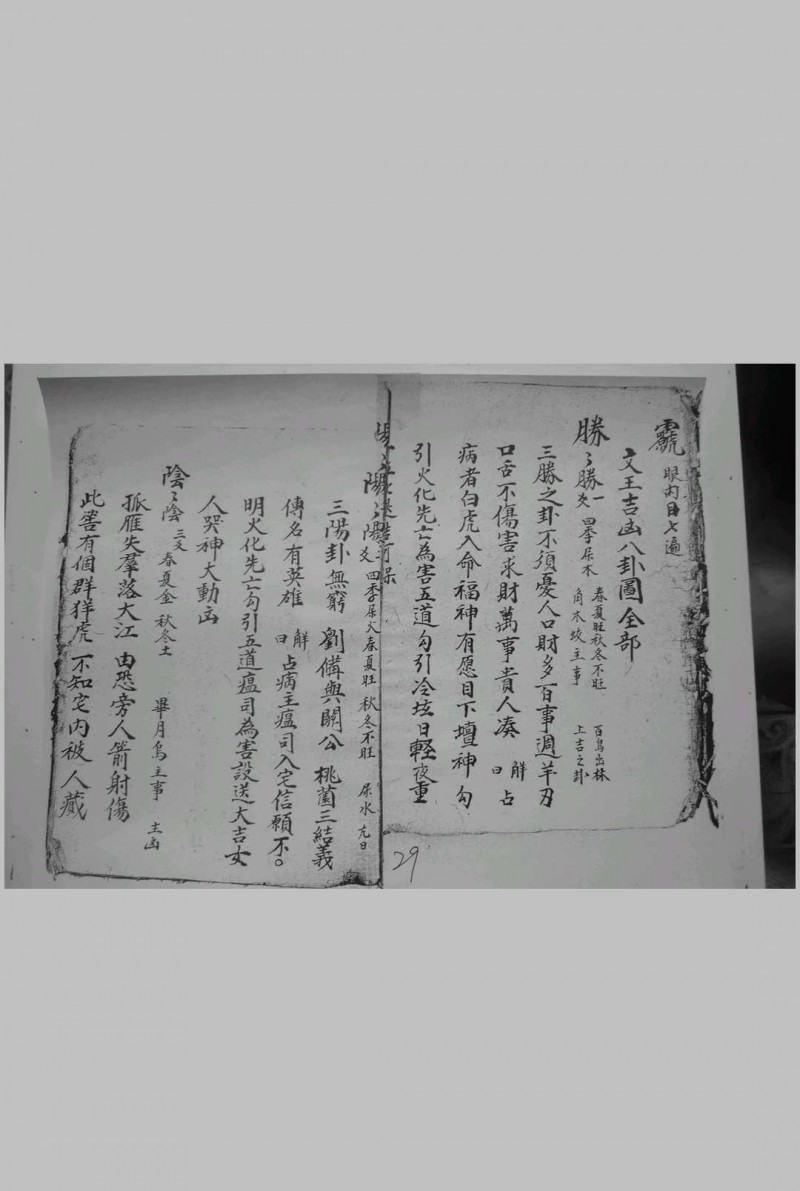 眼內目七遍
文王吉凶八卦圖全部
勝〻勝一爻 四季屬木 春夏旺秋冬不旺 百鳥出林
角木蛟主事 上吉之卦
三勝之卦不須憂人口財多百事週羊刃
口舌不傷害求財萬事貴人凑 解曰 占
病者白虎入命福神有愿目下壇神勾
引火化先亡為害五道勾引冷坛日輕夜重
陽〻陽 爻 四季屬火春夏旺 秋冬不旺 屬水
三陽卦無窮 劉備與關公 桃園三結義
傳名有英雄 解曰 占病主瘟司入宅信願不。
明火化先亡勾引五道瘟司為害設送大吉女
人哭神大動凶
陰〻陰 三爻 春夏金 秋冬土 畢月烏主事 主凶
孤雁失羣落大江 由恐旁人箭射傷
此害有個群羊虎 不知宅內被人藏
29